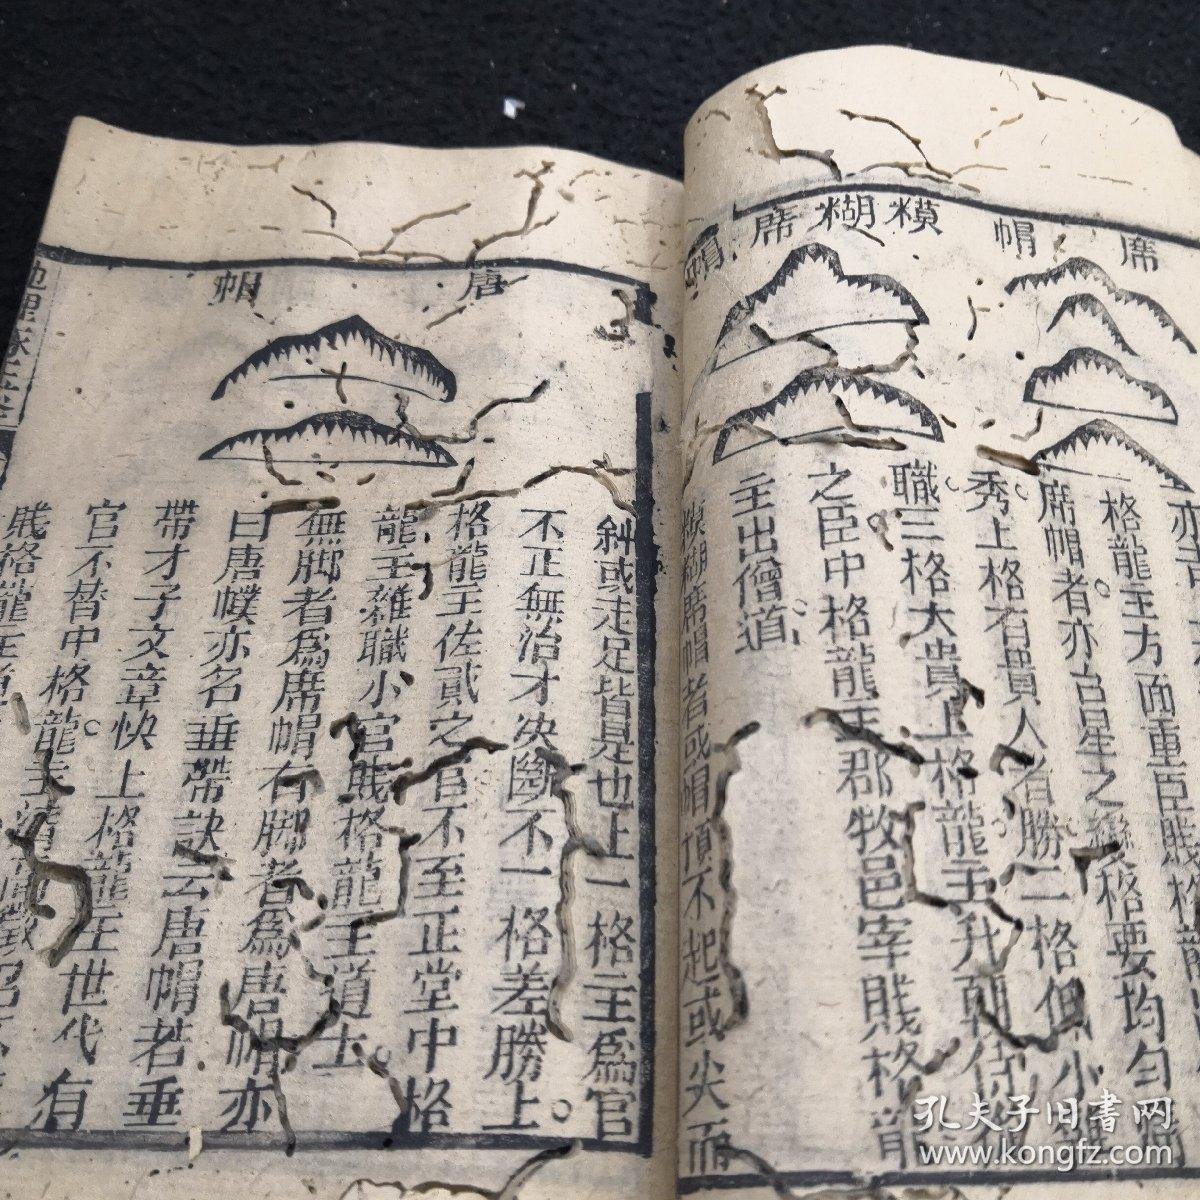 席
帽
模糊席
帽
格龍主方面重臣賤格龍
席帽者亦台星之變格要均勻
秀上格有貴人者勝二格低小
職三格大貴上格龍主升朝侍從
之臣中格龍主郡牧邑宰賤格龍
主出僧道
模糊席帽者或帽頂不起或尖而
唐
帽
斜或走足皆是也上一格主為官
不正無治才決斷不一格差勝上
格龍主佐貳之官不至正堂中格
龍主雜職小官賤格龍主道士
無脚者為席帽有脚者為唐帽亦
曰唐幞亦名垂帶訣云唐帽若垂
帶才子文章快上格龍主世代有
官不替中格龍主清
賤格龍主
孔夫子旧書网
www.kongfz.com